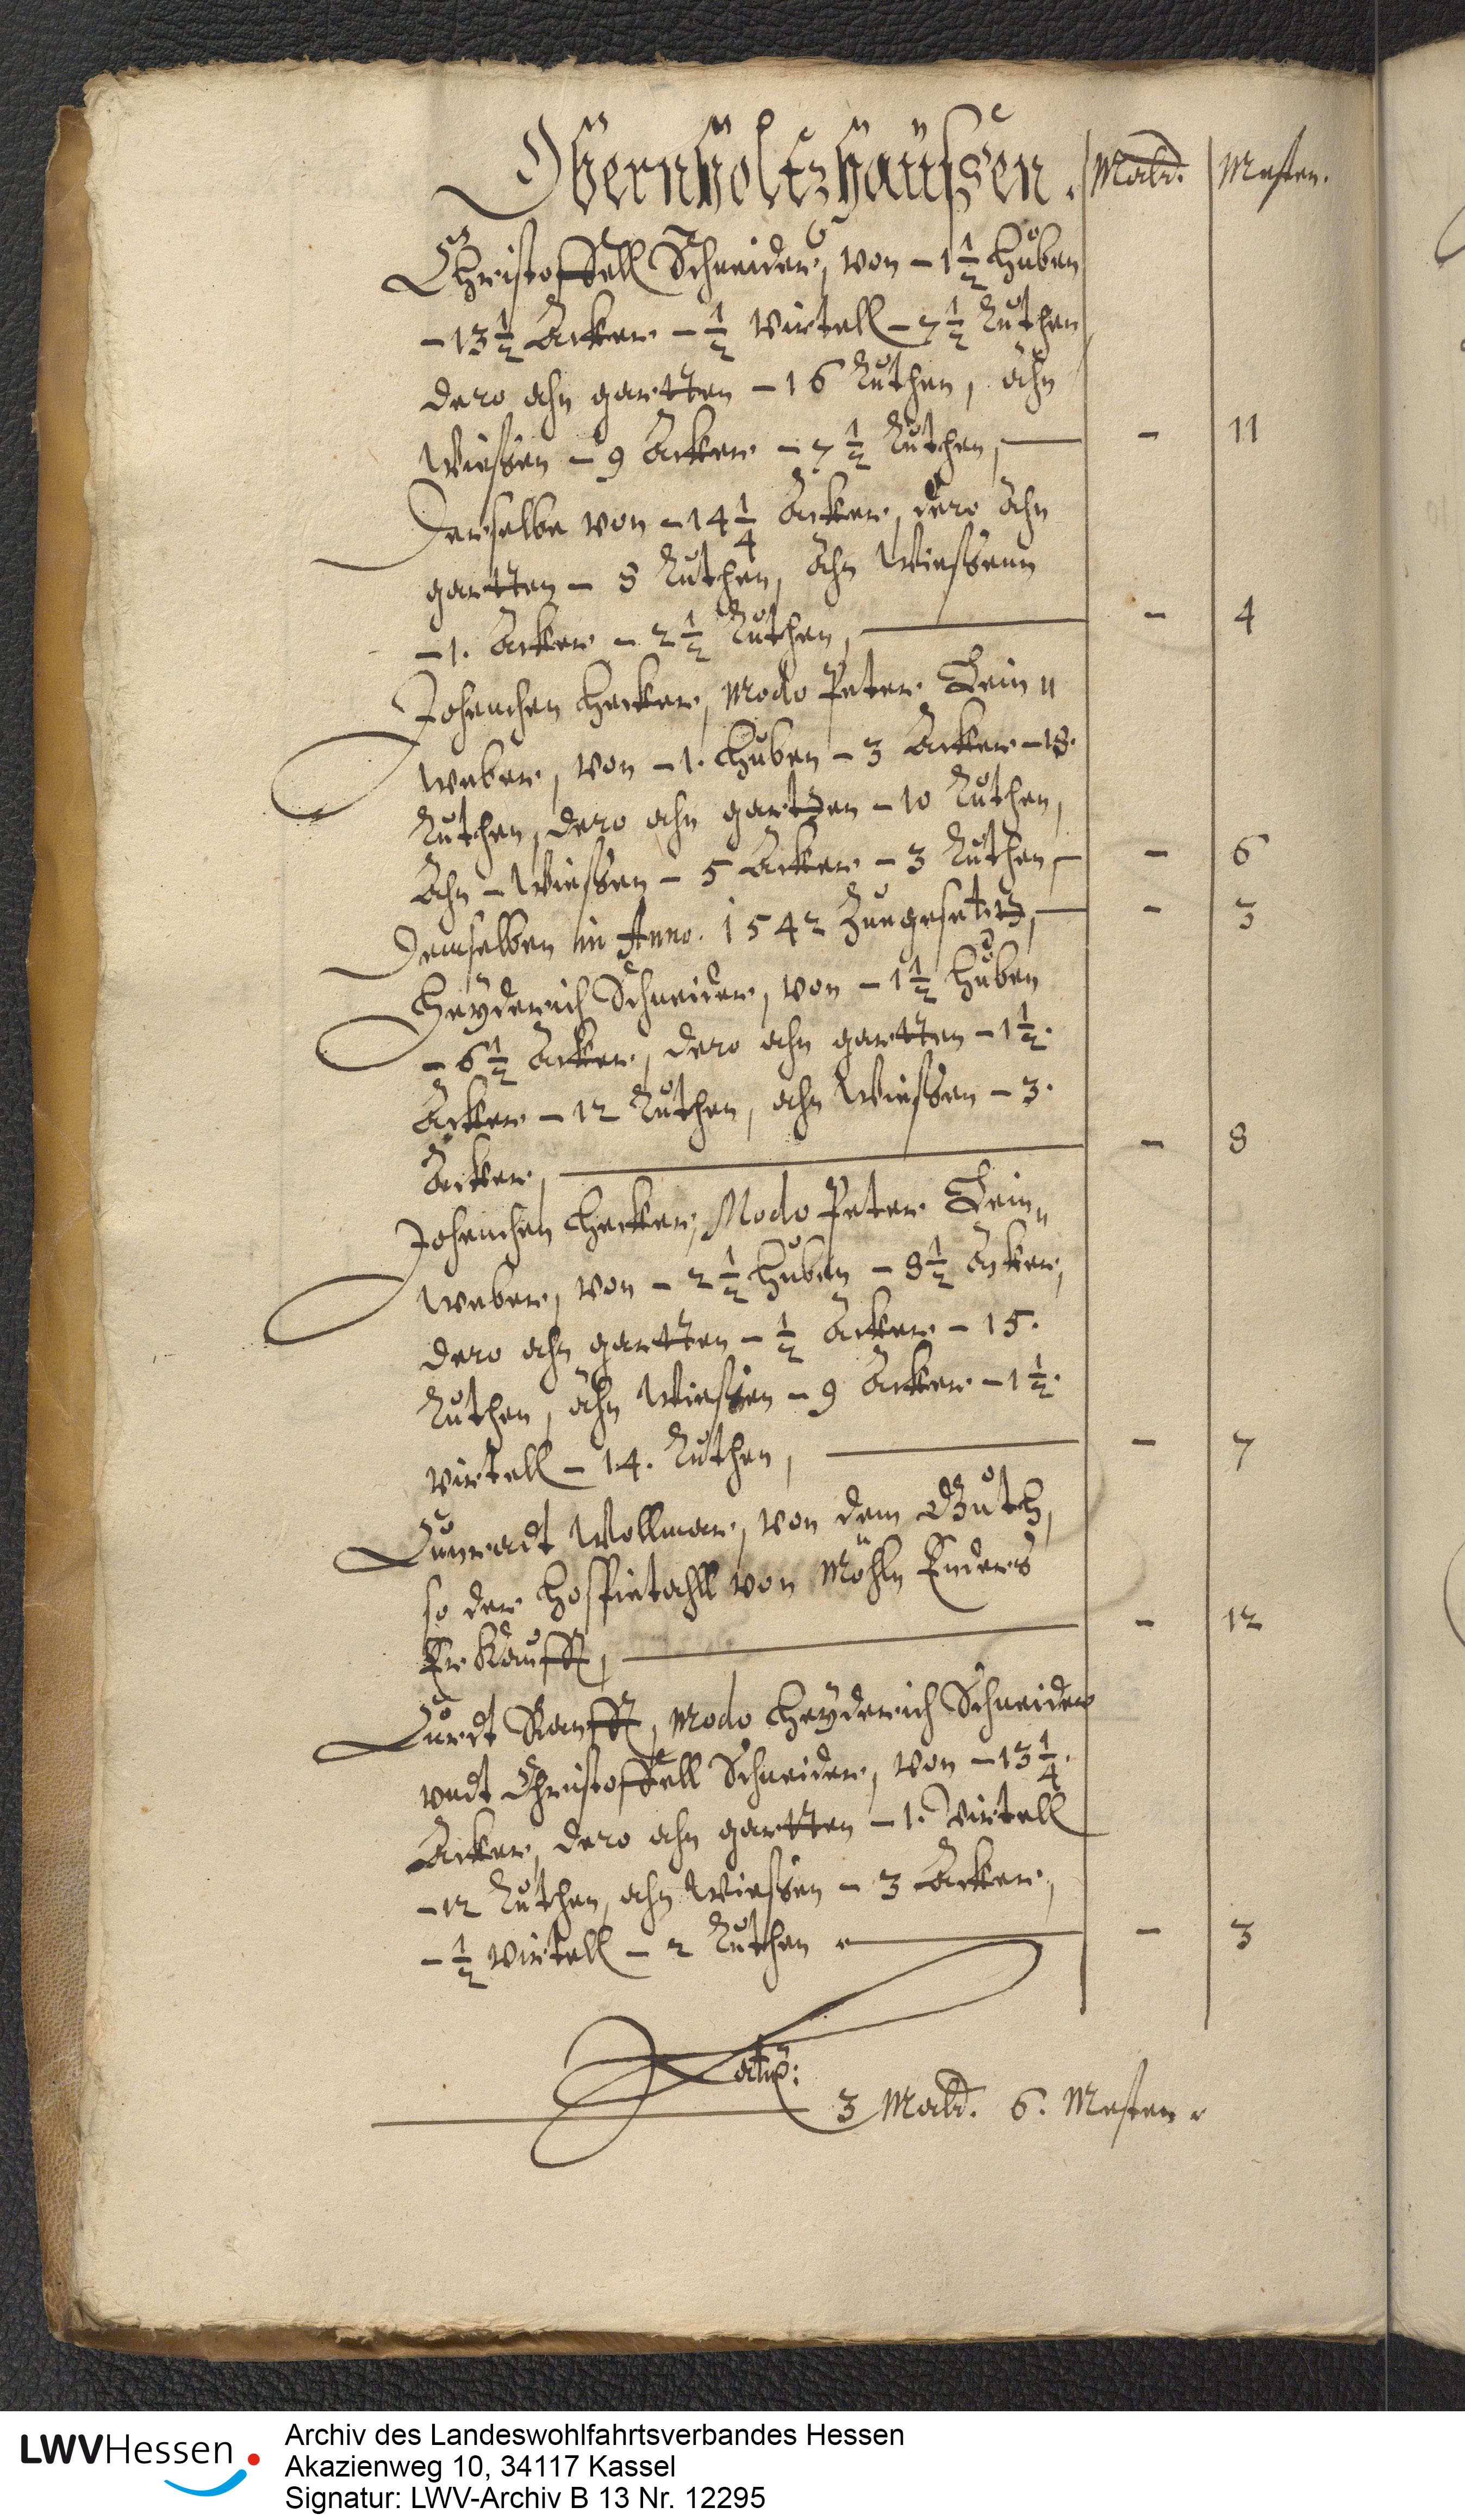 Obernholtzhaussen. Mald. Mesten.
Christoffell Schneider, von - 1 1/2 Huben
- 13 1/2 Acker - 1/2 Virtell - 7 1/2 Ruthen
dero ahn gartten - 16 Ruthen, ahn
Wiessen - 9 Acker - 7 1/2 Ruthen, - 11
Derselbe von - 14 1/4 Acker, dero ahn
gartten - 8 Ruthen, ahn Wiessenn
- 1. Acker - 2 1/2 Ruthen, - 4
Johenchen Hecker, Modo Peter Lein„
weber, von - 1. Huben - 3 Acker - 18.
Ruthen, dero ahn gartten - 10 Ruthen,
Ahn - Wiessen - 5 Acker - 3 Ruthen - 6
Demselben in Anno. 1542 Zuegesetzt, - 3
Heyderich Schneider, von - 1 1/2 Huben
- 6 1/2 Acker, dero ahn gartten - 1 1/2.
Acker - 12 Ruthen, ahn Wiessen - 3.
Acker, - 8
Johenchen Hecker, Modo Peter Lein„
weber, von - 2 1/2 Huben - 8 1/2 Acker,
dero ahn gartten - 1/2 Acker - 15.
Ruthen, ahn Wiessen - 9 Acker - 1 1/2.
virtell - 14. Ruthen, - 7
Cunradt Vollmar, von dem Guth,
so der Hospietahll von Möhln Enders
Erkaufft, - 12
Curdt Ranfft, Modo Heyderich Schneider
vndt Christoffell Schneider, von - 13 1/4.
Acker, dero ahn gartten - 1. Virtell
- 12 Ruthen, ahn Wiessen - 3 Acker,
- 1/2 virtell - 2 Ruthen - 3
Latus:
3 Mald. 6. Mesten.
LWVHessen
Archiv des Landeswohlfahrtsverbandes Hessen
Akazienweg 10, 34117 Kassel
Signatur: LWV-Archiv B 13 Nr. 12295